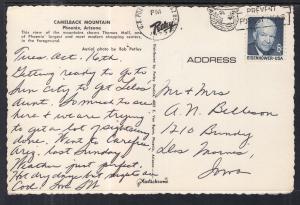 CAMELBACK MOUNTAIN
Phoenix, Arizona
This view of the mountain shows Thomas Mall, one
of Phoenix' largest and most modern shopping centers,
in the foreground.
Aerial photo by Bob Petley
PM
Petley
PREVENT
ADDRESS
EISENHOWER·USA
Tues. Oct. 16th.
Getting ready to go to
Sun City to get Lela's
Aunt. So much to see
here & we are trying
to get a lot sightseeing
done. Went to Carefree
Ariz. last Sunday
Weather just perfect.
Hot dry days but nights are
Cool.
Mr & Mrs
A. N. Bellson
1210 Bundy
Des Moines,
Iowa